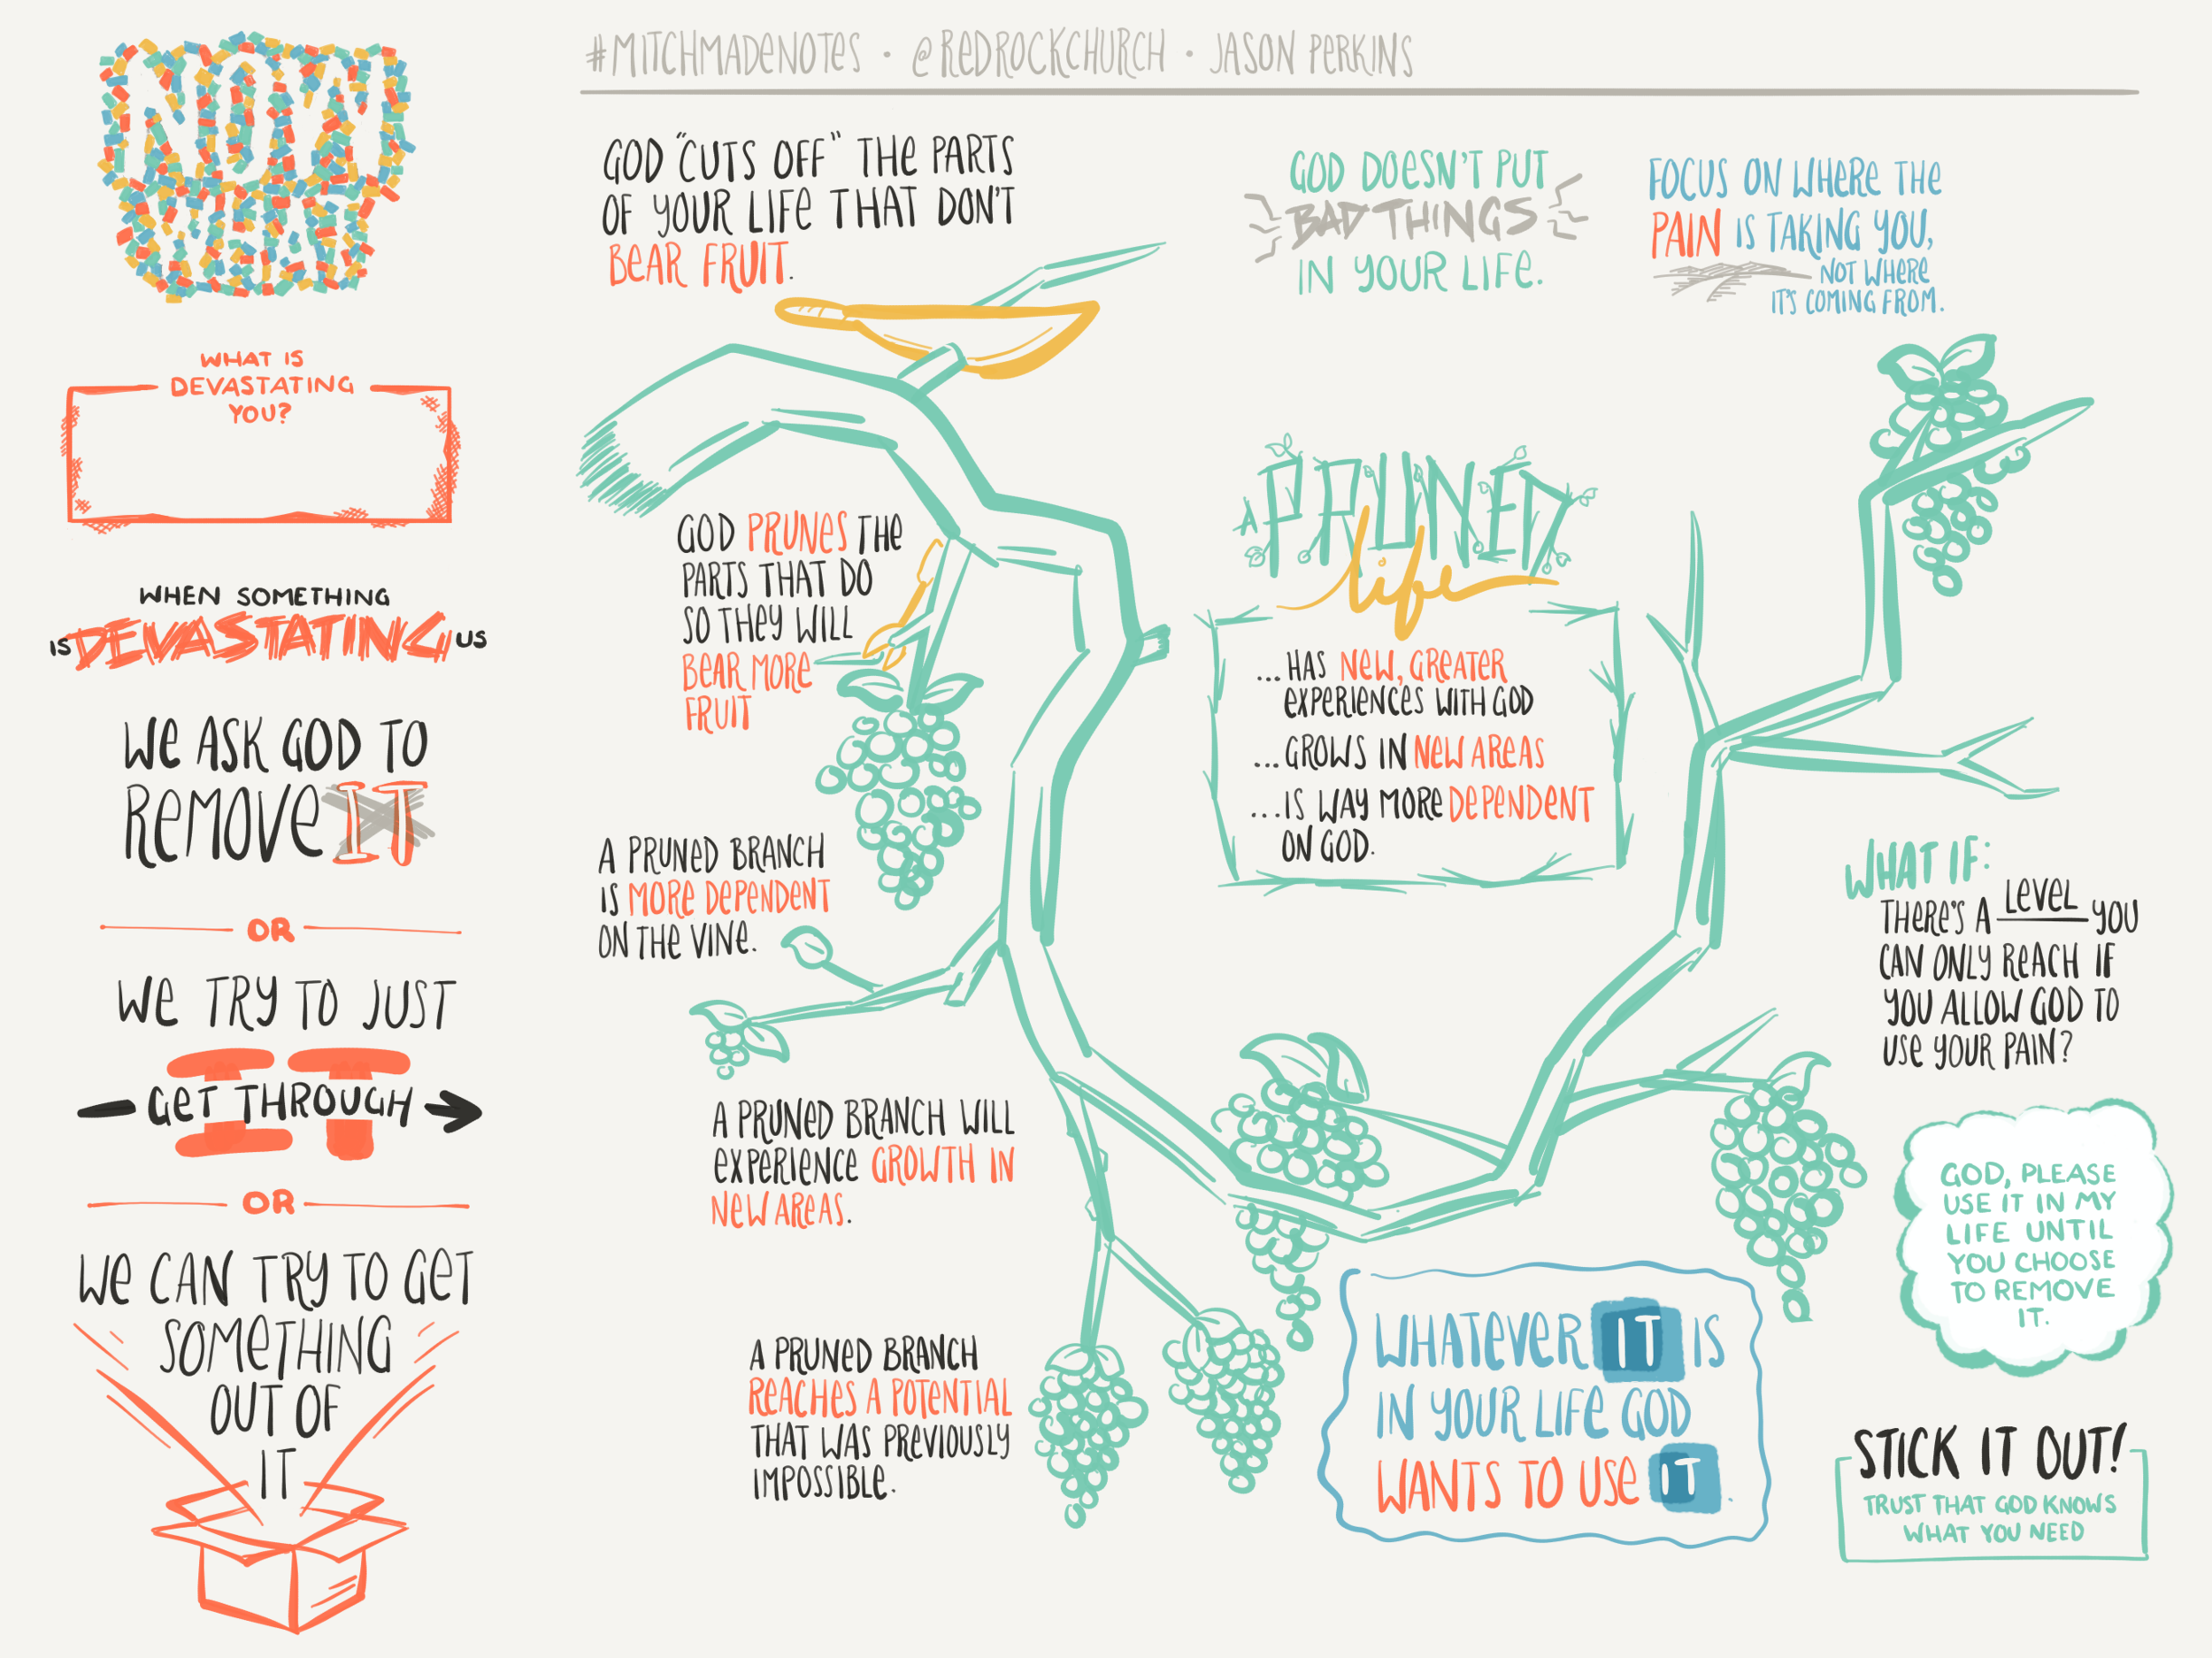 #MITCHMADENOTES · @REDROCKCHURCH · JASON PERKINS
WHAT IS
DEVASTATING
YOU?
WHEN SOMETHING
IS DEVASTATING US
WE ASK GOD TO
REMOVE IT
OR
WE TRY TO JUST
GET THROUGH
OR
WE CAN TRY TO GET
SOMETHING
OUT OF
IT
GOD "CUTS OFF" THE PARTS
OF YOUR LIFE THAT DON'T
BEAR FRUIT.
GOD PRUNES THE
PARTS THAT DO
SO THEY WILL
BEAR MORE
FRUIT
A PRUNED BRANCH
IS MORE DEPENDENT
ON THE VINE.
A PRUNED BRANCH WILL
EXPERIENCE GROWTH IN
NEW AREAS.
A PRUNED BRANCH
REACHES A POTENTIAL
THAT WAS PREVIOUSLY
IMPOSSIBLE.
GOD DOESN'T PUT
BAD THINGS
IN YOUR LIFE.
FOCUS ON WHERE THE
PAIN IS TAKING YOU,
NOT WHERE
IT'S COMING FROM.
A PRUNED
life
...HAS NEW, GREATER
EXPERIENCES WITH GOD
...GROWS IN NEW AREAS
...IS WAY MORE DEPENDENT
ON GOD.
WHAT IF:
THERE'S A LEVEL YOU
CAN ONLY REACH IF
YOU ALLOW GOD TO
USE YOUR PAIN?
GOD, PLEASE
USE IT IN MY
LIFE UNTIL
YOU CHOOSE
TO REMOVE
IT.
WHATEVER IT IS
IN YOUR LIFE GOD
WANTS TO USE IT.
STICK IT OUT!
TRUST THAT GOD KNOWS
WHAT YOU NEED